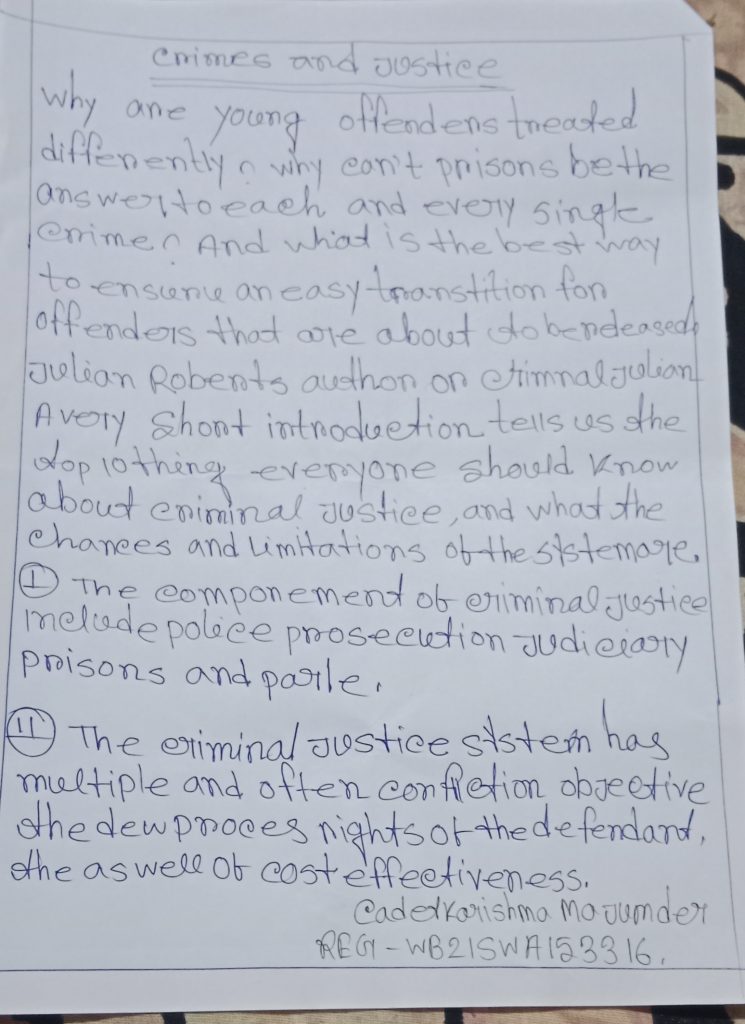 crimes and justice
why are young offenders treated
differently? why can't prisons be the
answer to each and every single
crime? And what is the best way
to ensure an easy transtition for
offenders that are about to be released?
Julian Roberts author on crimnal julian
A very short introduction tells us the
top 10 thing everyone should know
about criminal justice, and what the
chances and limitations of the sistemare.
I The componement of criminal justice
include police prosecution judiciary
prisons and parle.
II The criminal justice sistem has
multiple and often confletion objective
the dew proces rights of the defendard,
the as well of cost effectiveness.
Cadet Karishma Majumder
REG - WB21SWA153316.